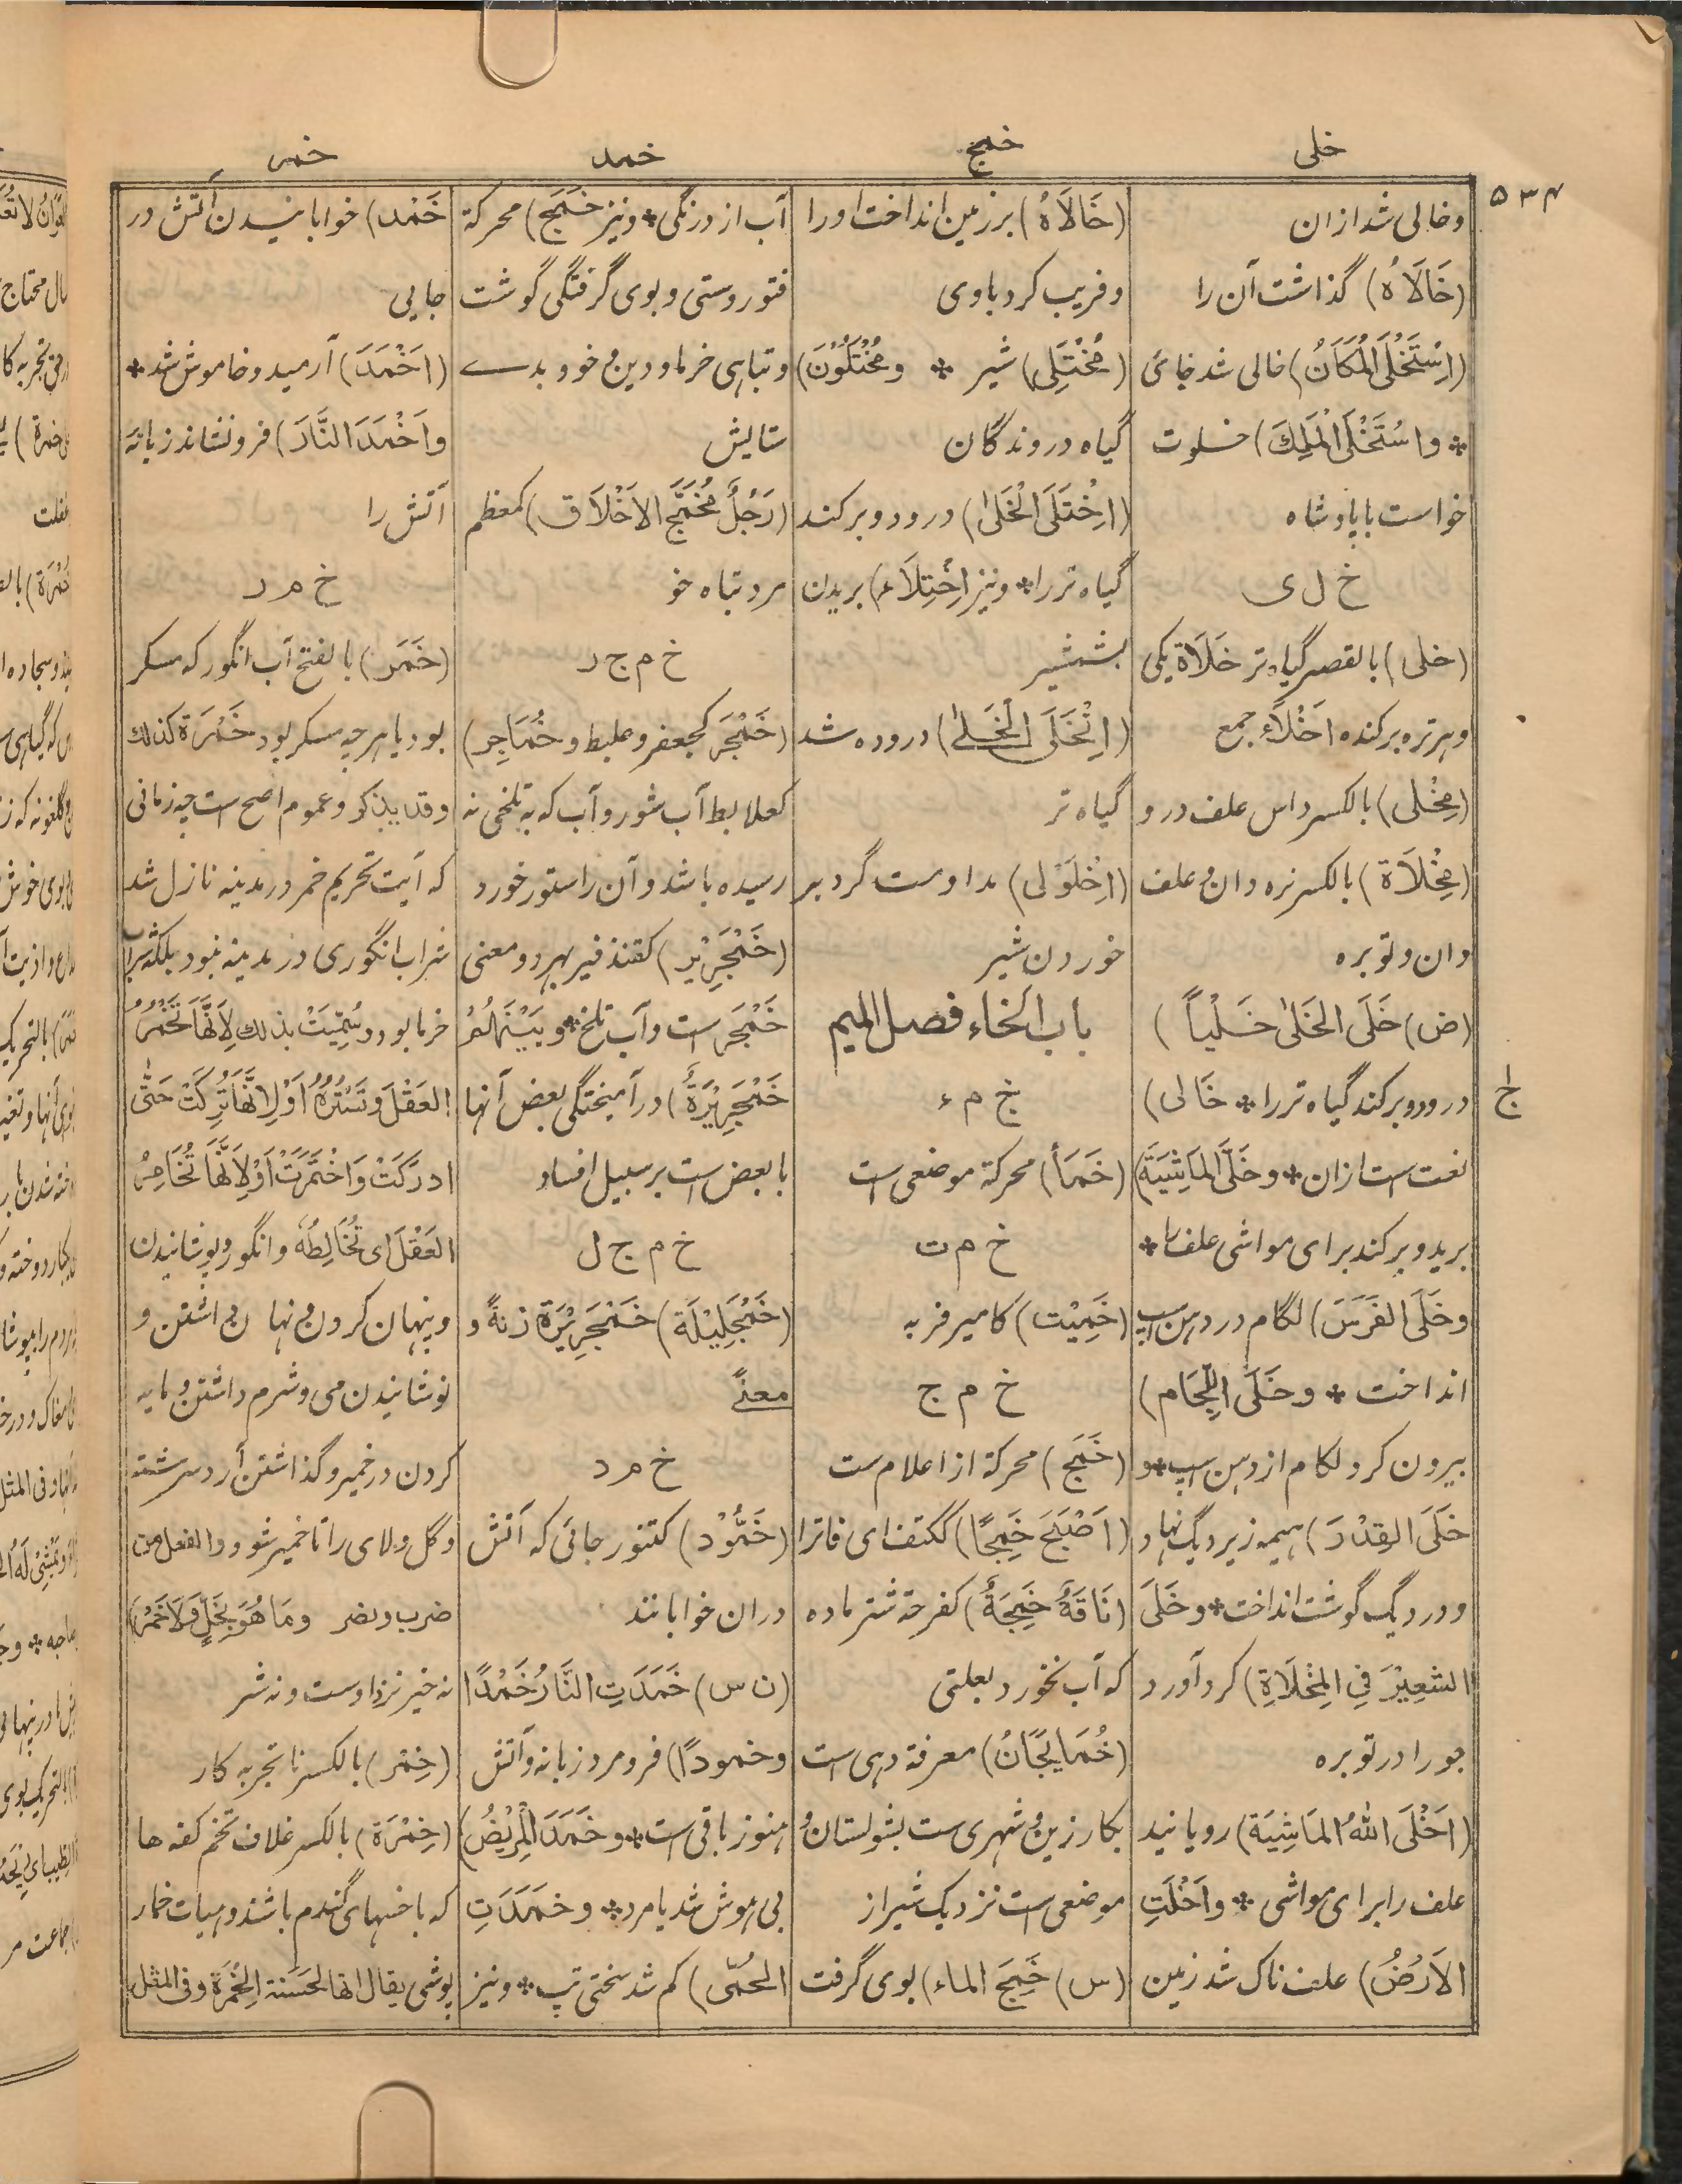 خلی
خمج
خمد
خمر
۵۳۴
وخالی شد ازان
(خَالَاهُ) گذاشت آن را
(اِسْتَخْلَی المَکَانُ) خالی شد جای
* واسْتَخْلَی المَلِكَ) خلوت
خواست با پادشاه
خ ل ی
(خلی) بالقصر گیاه تر خَلَاة یکی
وہر تره برکنده اَخْلَاء جمع
(مِخْلی) بالکسر داس علف درو
(مِخْلَاة) بالکسر نره دان علف
دان وتوبره
(ض) خَلَی الخَلیٰ خَلْیاً)
درود وبرکند گیاه تر را * خَالی)
نعت است ازان * وخَلَی المَاشِیَةَ)
برید وبرکند برای مواشی علف را *
وخَلَی الفَرَسَ) لگام در دہن اسپ
انداخت * وخَلَی اللِّجَام)
بیرون کرد لگام از دہن اسپ * و
خَلَی القِدْرَ) ہیمه زیر دیگ نہاد
ودر دیگ گوشت انداخت * وخَلَی
الشَعِیْرَ فِی المِخْلَاةِ) گرد آورد
جو را در توبره
(اَخْلَی اللهُ المَاشِیَةَ) رویانید
علف را برای مواشی * واَخْلَتِ
الاَرْضُ) علف ناک شد زمین
(خَالَاهُ) بر زمین انداخت او را
وفریب کرد با وی
(مُخْتَلِی) شیر * ومُخْتَلُوْنَ)
گیاه دروندگان
(اِخْتَلَی الْخَلیٰ) درود وبرکند
گیاه تر را * ونیز اِخْتِلَاء) بریدن
بشمشیر
(اِنْخَلَی الخَلیٰ) دروده شد
گیاه تر
(اِخْلَوْلی) مداومت کرد بر
خوردن شیر
باب الخاء فصل المیم
خ م ء
(خَمَأ) محرکة موضعی است
خ م ت
(خَمِیْت) کامیر فربه
خ م ج
(خَمَج) محرکة از اعلام ست
(اَصْبَحَ خَمِجًا) ککتف ای فاترا
(نَاقَةٌ خَمِجَةٌ) کفرحة شتر ماده
که آب نخورد بعلتی
(خُمَایِجَانُ) معرفة دہی است
بکارزین وشہری ست بشولستان
موضعی ست نزدیک شیراز
(س) خَمِجَ الماء) بوی گرفت
آب از درنگی * ونیز خَمَج) محرکة
فتور وسستی وبوی گرفتگی گوشت
وتباہی خرما ودین وخو وبدے
ستایش
(رَجُلٌ مُخَمَّجُ الاَخْلَاق) کمعظم
مرد تباه خو
خ م ج ر
(خَمْجَر کجعفر وعلبط وخُمَاجِر)
کعلابط آب شور وآب که به تلخی نه
رسیده باشد وآن را ستور خورد
(خَمْجَرِیْر) کقندفیر بہر دو معنی
خَمْجَر ست وآب تلخ * وبَیْنَهُمْ
خَمْجَرِیْرَةٌ) در آمیختگی بعض آنها
با بعض ست بر سبیل افساد
خ م ج ل
(خَمْجَلِیْلَة) خَمْجَرِیْرَة زنةً و
معنًے
خ م د
(خَمُّوْد) کتنور جائی که آتش
دران خوابانند
(ن س) خَمَدَتِ النَّارُ خَمْدًا
وخمودًا) فرومرد زبانه وآتش
ہنوز باقی ست * وخَمَدَ المَرِیْضُ)
بی ہوش شد یا مرد * وخَمَدَتِ
الحُمّی) کم شد سختی تپ * ونیز
خَمْد) خوابانیدن آتش در
جایی
(اَخْمَدَ) آرمید وخاموش شد *
واَخْمَدَ النَّارَ) فرونشاند زبانۀ
آتش را
خ م ر
(خَمْر) بالفتح آب انگور که مسکر
بود یا ہر چه مسکر بود خَمْرَة کذلك
وقد یذکر وعموم اصح ست چه زمانی
که آیت تحریم خمر در مدینه نازل شد
شراب انگوری در مدینه نبود بلکه شراب
خرما بود وسُمِّیَتْ بذلك لِاَنَّهَا تَخْمُرُ
العَقْلَ وتَسْتُرُهُ اَوْ لِاَنَّهَا تُرِکَتْ حَتّٰی
ادرَکَتْ وَاخْتَمَرَتْ اَوْ لِاَنَّهَا تُخَامِرُ
العَقْلَ ای تُخَالِطُهٗ وانگور وپوشانیدن
وپنہان کردن ونہان داشتن و
نوشانیدن می وشرم داشتن ومایه
کردن در خمیر وگذاشتن آرد سرشته
وگل ولای را تا خمیر شود والفعل من
ضرب ونصر ومَا هُوَ بِخَلٍّ وَلَا خَمْرٍ)
نه خیر نزد اوست ونه شر
(خِمْر) بالکسر نا تجربه کار
(خِمْرَة) بالکسر غلاف تخم کفه ها
که با خنہای گندم باشد وہیات خمار
پوشی یقال انها لحَسَنة الخِمْرَة وفی المثل